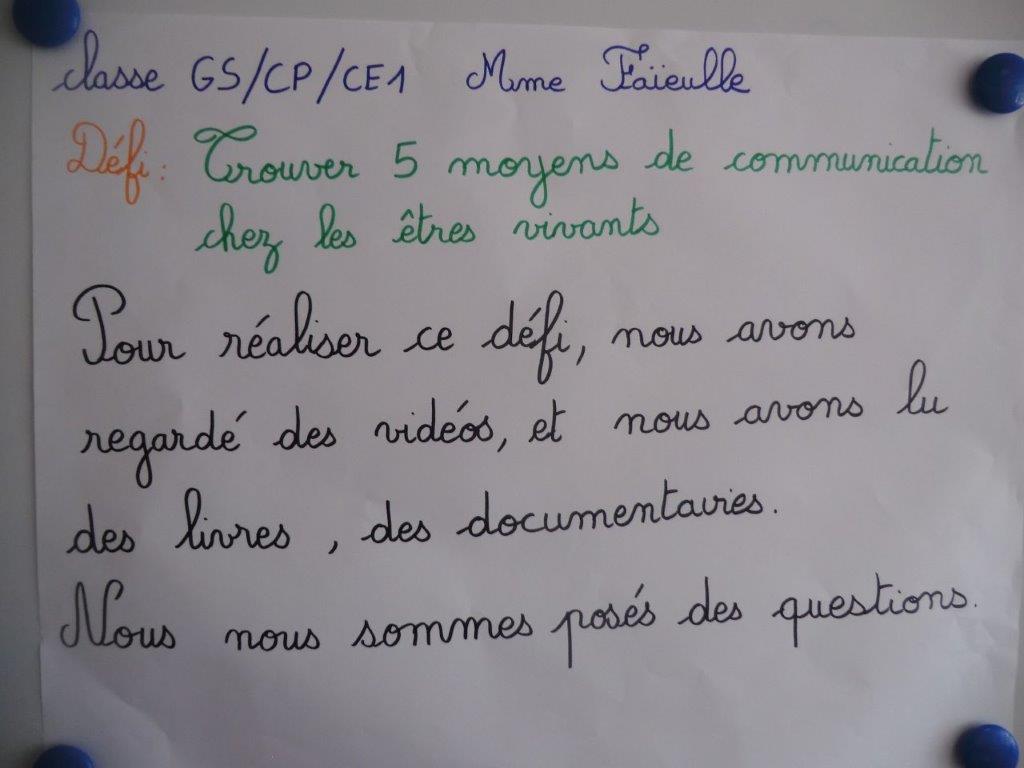 classe GS/CP/CE1 Mme Faïeulle
Défi: Trouver 5 moyens de communication
chez les êtres vivants
Pour réaliser ce défi, nous avons
regardé des vidéos, et nous avons lu
des livres, des documentaires.
Nous nous sommes posés des questions.